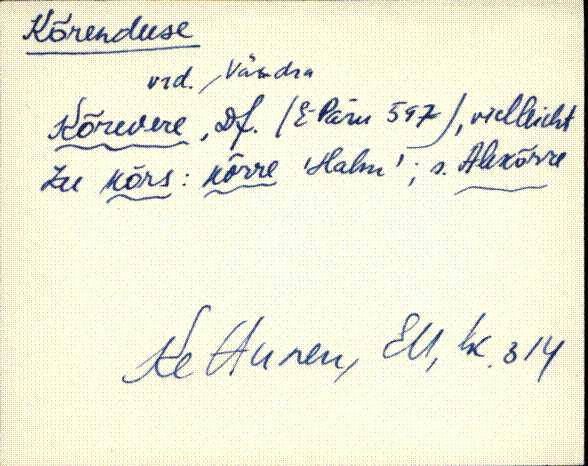 Kõrenduse
vrd. Vändra
Kõrevere, Df. (E-Pärn 597), vielleicht
zu kõrs : kõrre 'Halm'; s. Alekõrre
Kettunen, EM, lk. 314